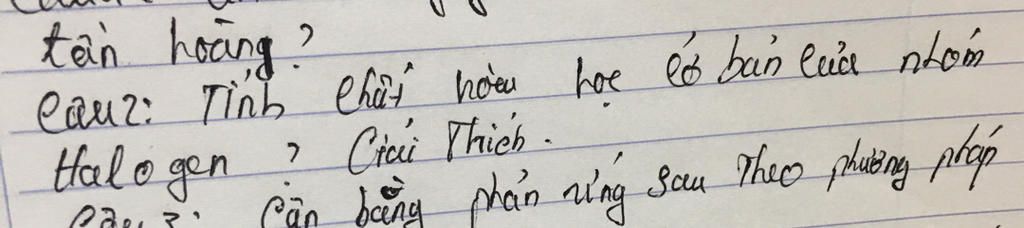 tần hoàng?
Câu 2: Tính chất hóa học cơ bản của nhóm
Halogen? Giải Thích.
Câu 3: Cân bằng phản ứng sau Theo phương pháp